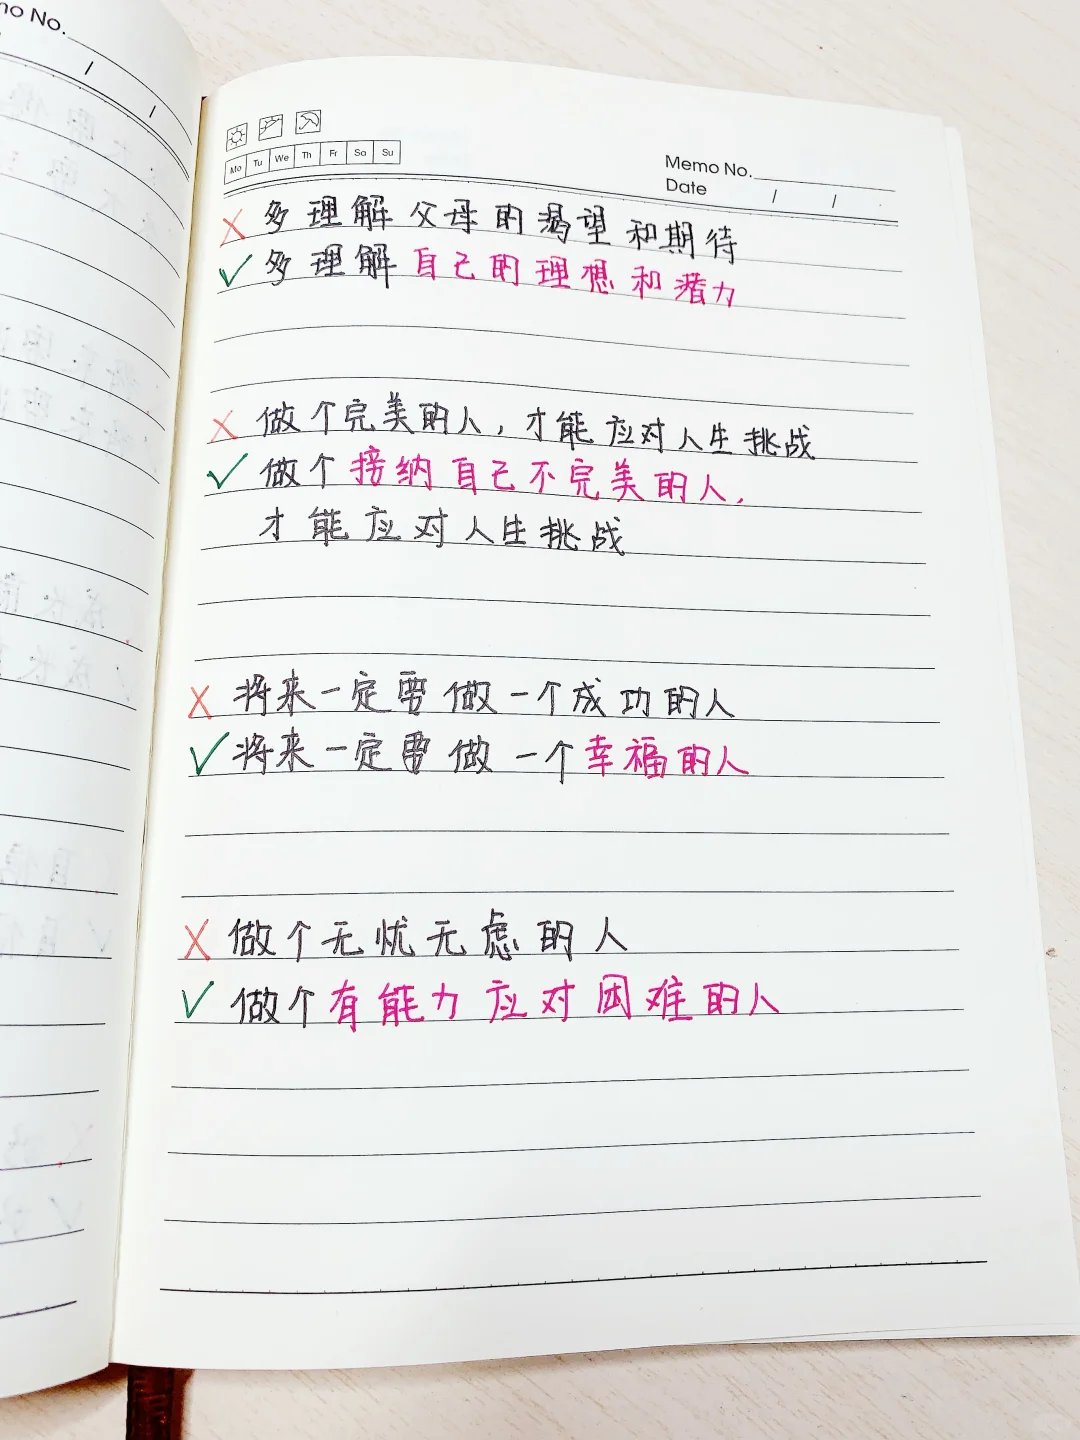 mo No.
Mo Tu We Th Fr Sa Su
Memo No.
Date / /
✗ 多理解父母的渴望和期待
✓ 多理解自己的理想和潜力
✗ 做个完美的人，才能应对人生挑战
✓ 做个接纳自己不完美的人，
才能应对人生挑战
✗ 将来一定要做一个成功的人
✓ 将来一定要做一个幸福的人
✗ 做个无忧无虑的人
✓ 做个有能力应对困难的人